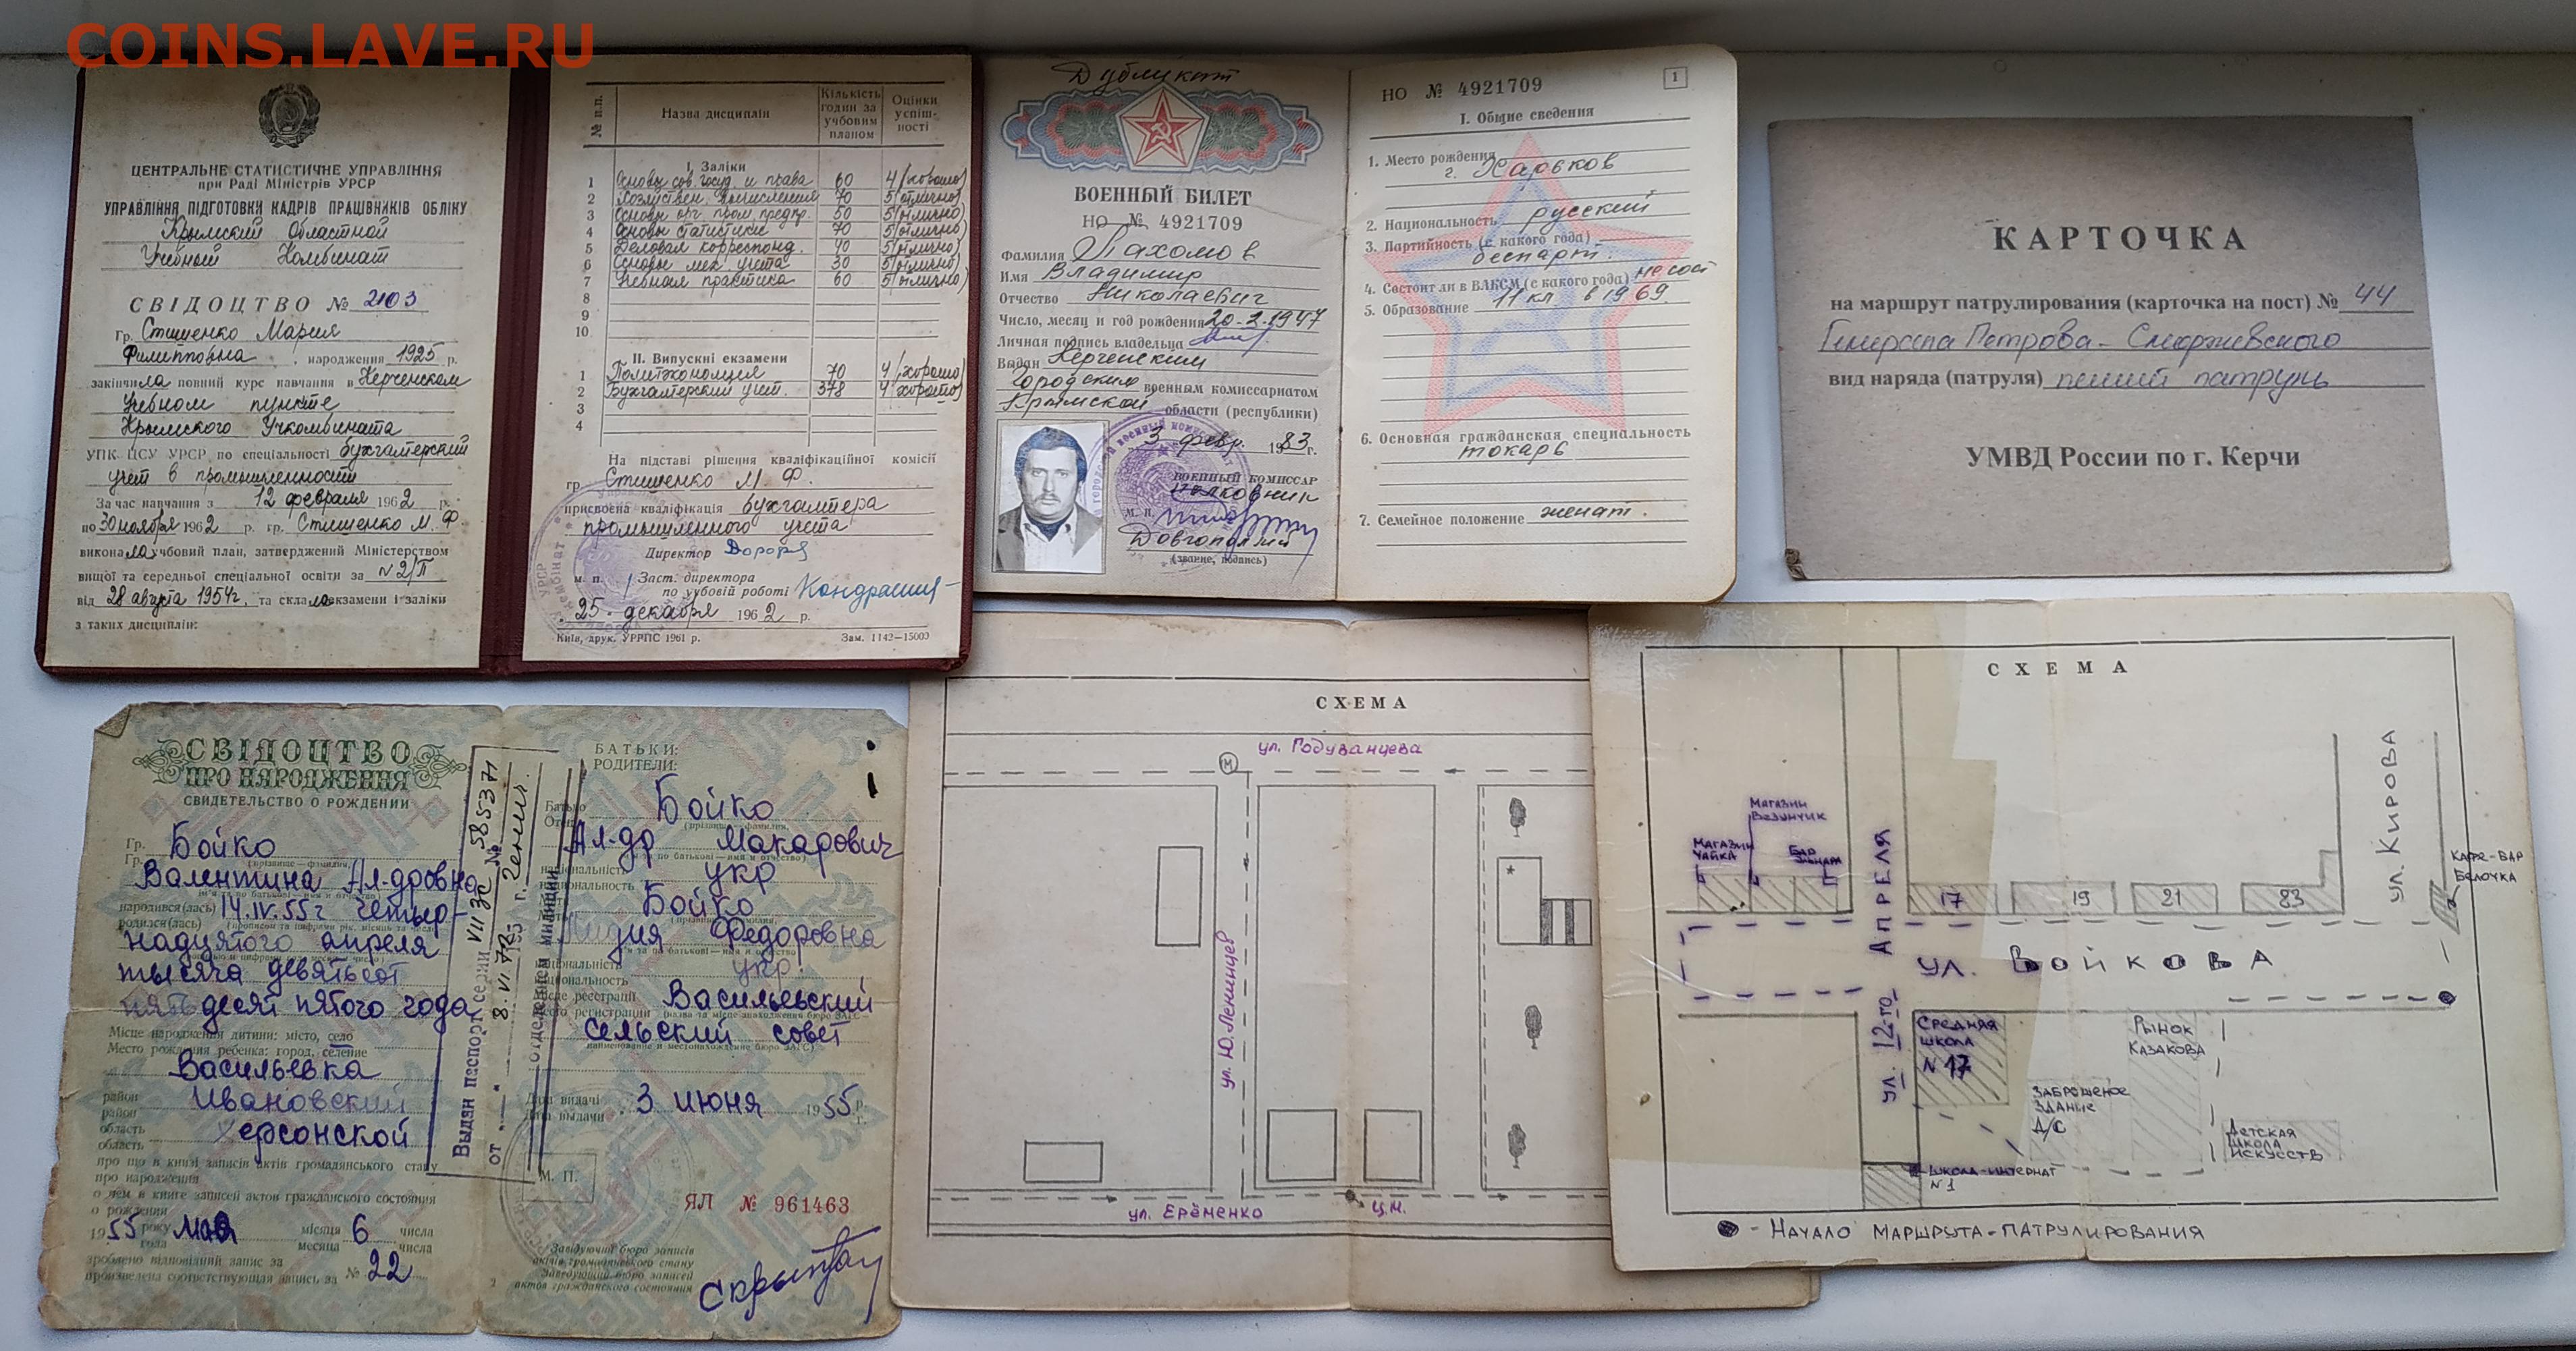 COINS.LAVE.RU
ЦЕНТРАЛЬНЕ СТАТИСТИЧНЕ УПРАВЛІННЯ
при Раді Міністрів УРСР
УПРАВЛІННЯ ПІДГОТОВКИ КАДРІВ ПРАЦІВНИКІВ ОБЛІКУ
Крымский Областной
Учебный Комбинат
СВІДОЦТВО № 2103
Гр. Стишенко Мария
Филипповна, народження 1925 р.
закінчила повний курс навчання в Керченском
учебном пункте
Крымского Учкомбината
УПК ЦСУ УРСР по спеціальності бухгалтерский
учет в промышленности
За час навчання з 12 февраля 1962 р.
по 30 ноября 1962 р. гр. Стишенко М. Ф.
виконала учбовий план, затверджений Міністерством
вищої та середньої спеціальної освіти за N 2/П
від 28 августа 1954г. та склала екзамени і заліки
з таких дисциплін:
№ п.п.
Назва дисциплін
Кількість годин за учбовим планом
Оцінки успіш-ності
I. Заліки
1 Основы сов. госуд. и права 60 4 (хорошо)
2 Хозяйствен. вычисления 70 5 (отлично)
3 Основы орг. пром. предпр. 50 5 (отлично)
4 Основы статистики 70 5 (отлично)
5 Деловая корреспонд. 40 5 (отлично)
6 Основы мех. учета 30 5 (отлично)
7 Учебная практика 60 5 (отлично)
8
9
10
II. Випускні екзамени
1 Политэкономия 70 4 (хорошо)
2 Бухгалтерский учет. 378 4 (хорошо)
3
4
На підставі рішення кваліфікаційної комісії
гр. Стишенко М. Ф.
присвоєна кваліфікація бухгалтера
промышленного учета
Директор
м. п. Заст. директора
по учбовій роботі
25 декабря 1962 р.
Київ, друк. УРРПС 1961 р. Зам. 1142—15000
Дубликат
ВОЕННЫЙ БИЛЕТ
НО № 4921709
Фамилия Пахомов
Имя Владимир
Отчество Николаевич
Число, месяц и год рождения 20-2-1947
Личная подпись владельца
Выдан Керченским
городским военным комиссариатом
Крымской области (республики)
3 февр. 1983 г.
ВОЕННЫЙ КОМИССАР
полковник
М. П.
Довгополый
(звание, подпись)
НО № 4921709
1
I. Общие сведения
1. Место рождения
г. Харьков
2. Национальность русский
3. Партийность (с какого года)
беспарт.
4. Состоит ли в ВЛКСМ (с какого года) не сост
5. Образование 11 кл в 1969.
6. Основная гражданская специальность
токарь
7. Семейное положение женат.
КАРТОЧКА
на маршрут патрулирования (карточка на пост) № 44
Генерала Петрова - Сморжевского
вид наряда (патруля) пеший патруль
УМВД России по г. Керчи
СВІДОЦТВО
ПРО НАРОДЖЕННЯ
СВИДЕТЕЛЬСТВО О РОЖДЕНИИ
Гр.
Гр. Бойко
Валентина Ал-дровна
народився(лась)
родился(лась) 14.IV.55г четыр-
надцятого апреля
тысяча девятьсот
пятьдесят пятого года
Місце народження дитини: місто, село
Место рождения ребенка: город, селение
Васильевка
район
район Ивановский
область
область Херсонской
про що в книзі записів актів громадянського стану
про народження
о чем в книге записей актов гражданского состояния
о рождении
1955 року
года мая місяця
месяца 6 числа
числа
зроблено відповідний запис за
произведена соответствующая запись за № 22
Выдан паспорт серии VII ЭС № 585371
от 8.VI.72 г. Генич.
отделением милиции
БАТЬКИ:
РОДИТЕЛИ:
Батько
Отец Бойко
Ал-др Макарович
укр
Бойко
Лидия Федоровна
укр.
Місце реєстрації
Место регистрации Васильевский
сельский совет
Дата видачі
Дата выдачи 3 июня 1955 р.
г.
М. П.
ЯЛ № 961463
Завідуючий бюро записів
актів громадянського стану
Заведующий бюро записей
актов гражданского состояния
СХЕМА
ул. Годуванцева
М
ул. Ю.Ленинцев
ул. Ерёменко
Ц.М.
СХЕМА
Магазин Везунчик
Магазин Чайка
Бар
ул. 12-го Апреля
17
19
21
83
ул. Кирова
Кафе-бар Белочка
ул. Войкова
Средняя школа N 17
Рынок Казакова
Заброшеное здание Д/С
Детская школа искусств
Школа-интернат N 1
- Начало маршрута-патрулирования